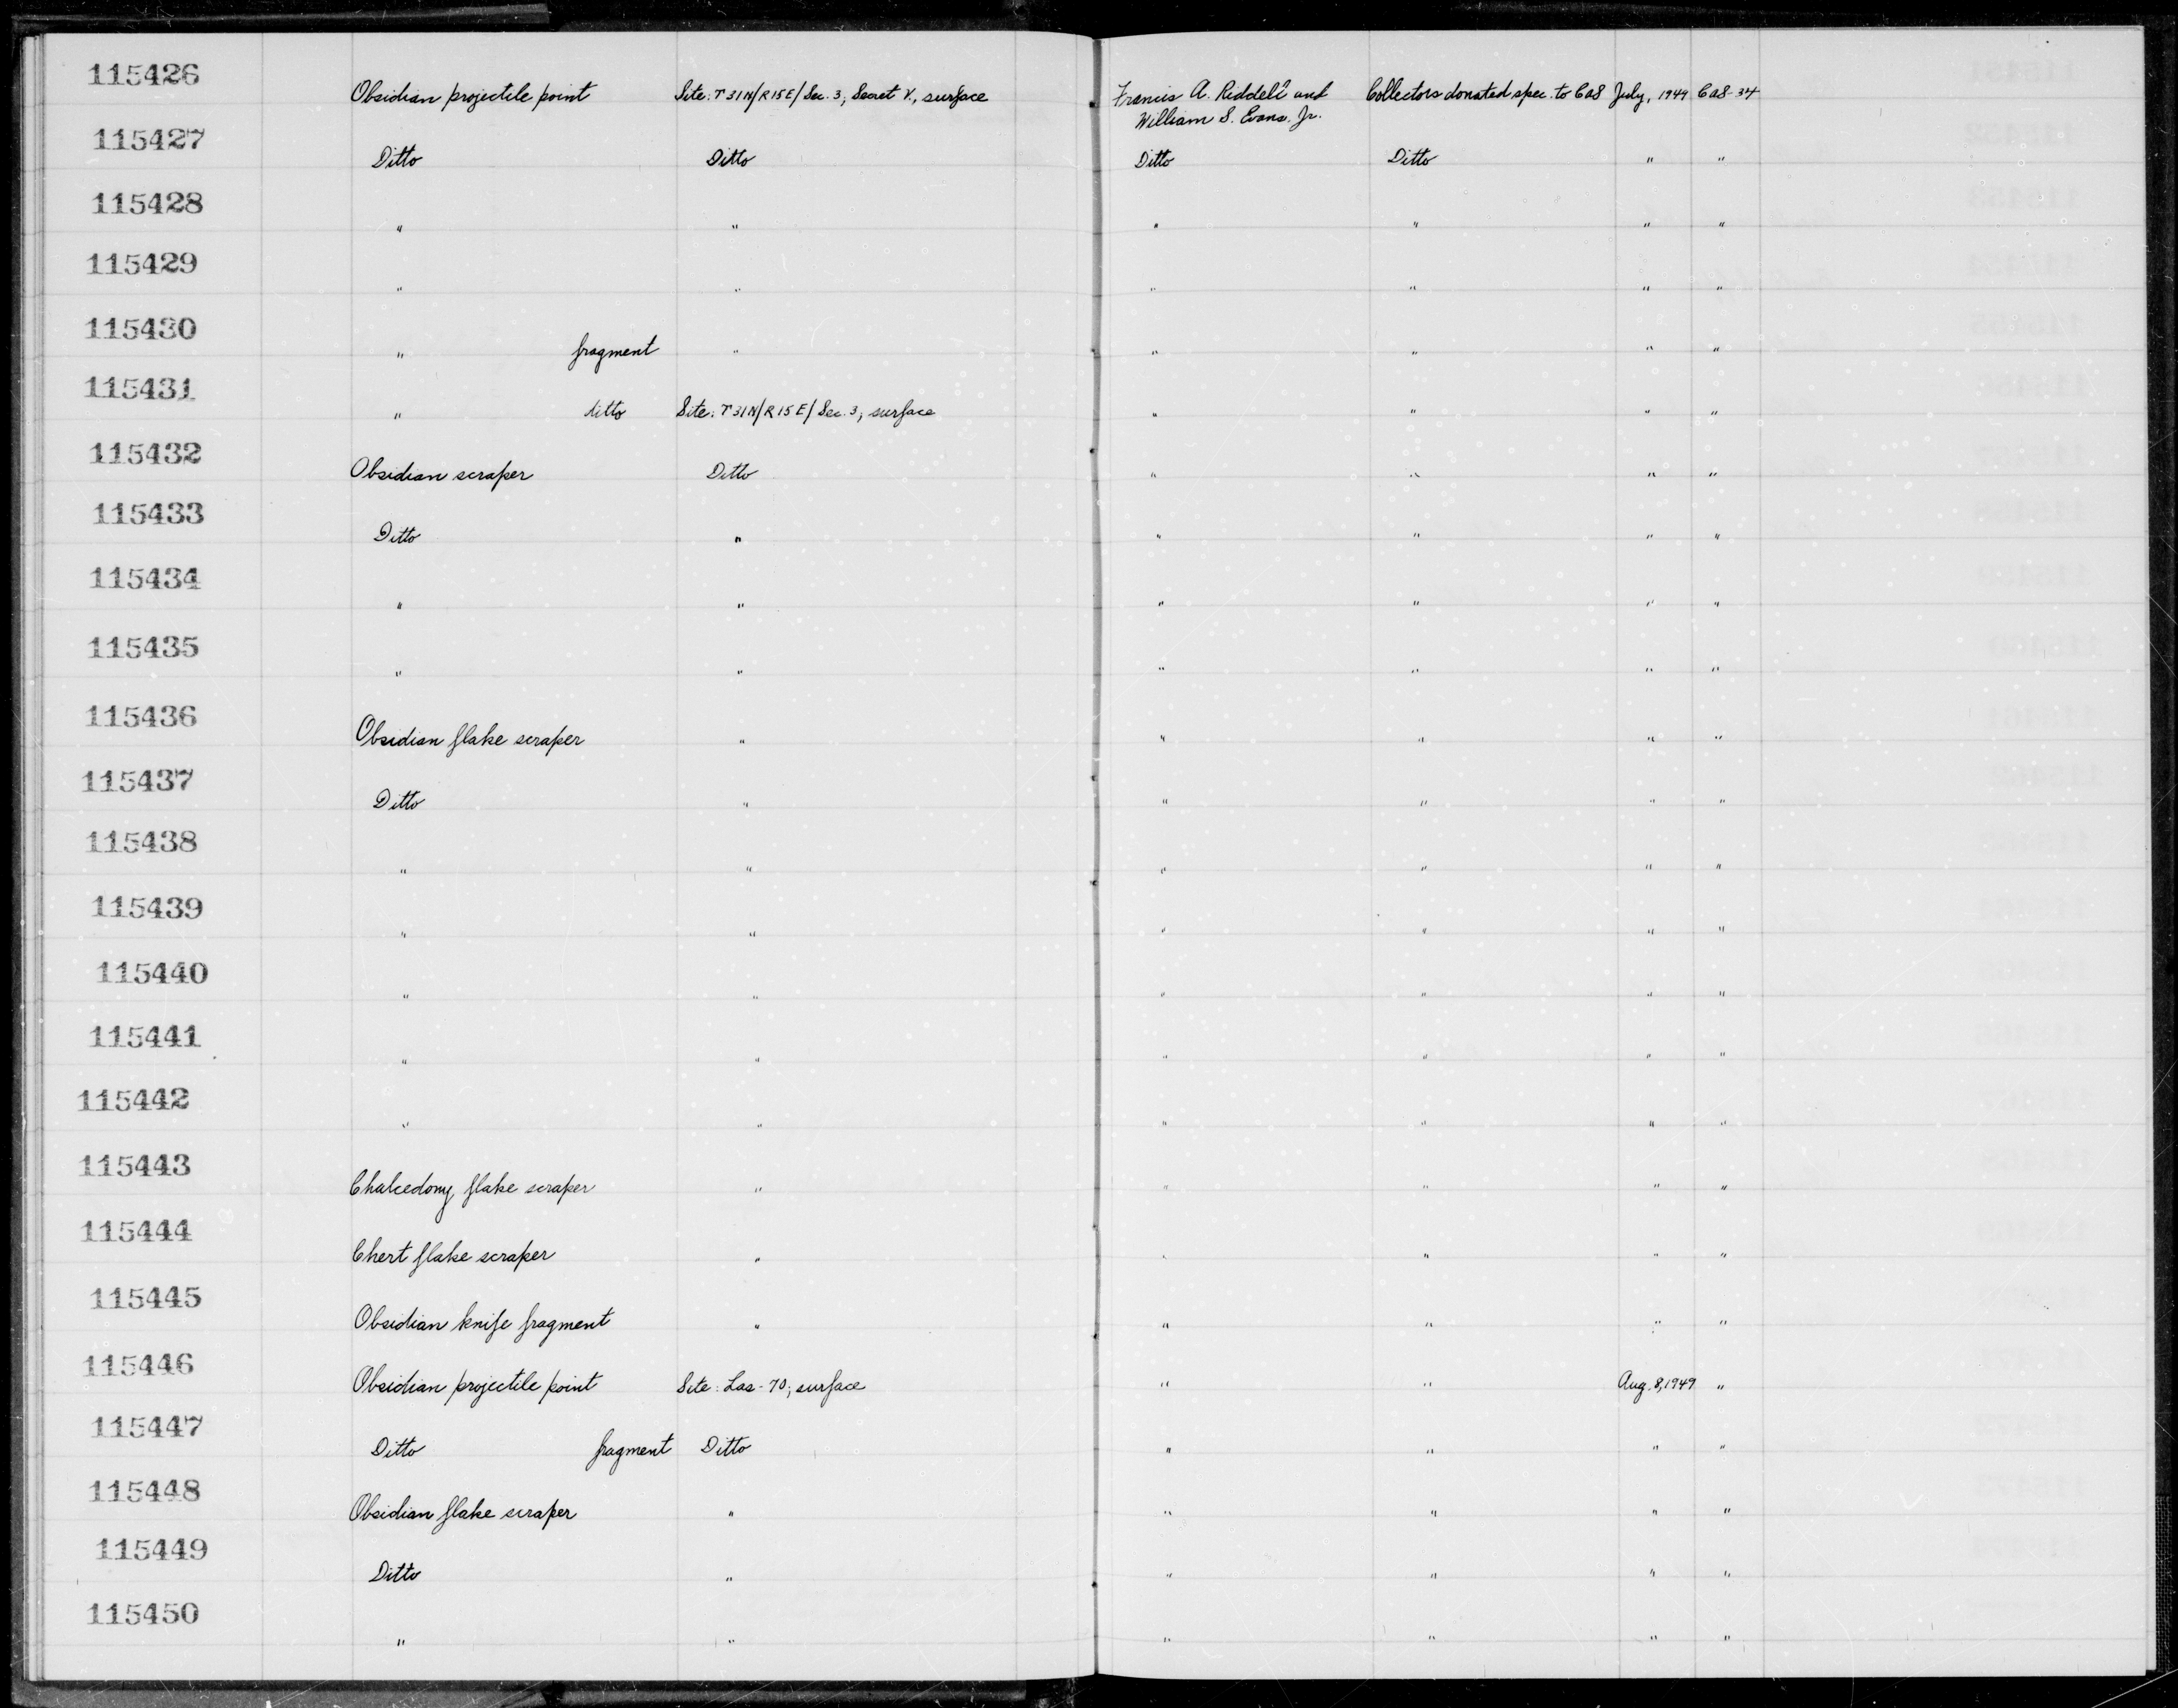 115426 Obsidian projectile point Site: T31N/R15E/Sec. 3, Secret V., surface Francis A. Riddell and William S. Evans, Jr. Collectors donated spec. to CAS July, 1949 CAS-34
115427 Ditto Ditto Ditto Ditto " "
115428 " " " " " "
115429 " " " " " "
115430 " fragment " " " " "
115431 " ditto Site: T31N/R15E/Sec. 3, surface " " " "
115432 Obsidian scraper Ditto " " " "
115433 Ditto " " " " "
115434 " " " " " "
115435 " " " " " "
115436 Obsidian flake scraper " " " " "
115437 Ditto " " " " "
115438 " " " " " "
115439 " " " " " "
115440 " " " " " "
115441 " " " " " "
115442 " " " " " "
115443 Chalcedony flake scraper " " " " "
115444 Chert flake scraper " " " " "
115445 Obsidian knife fragment " " " " "
115446 Obsidian projectile point Site: Las-70, surface " " Aug. 8, 1949 "
115447 Ditto fragment Ditto " " " "
115448 Obsidian flake scraper " " " " "
115449 Ditto " " " " "
115450 " " " " " "